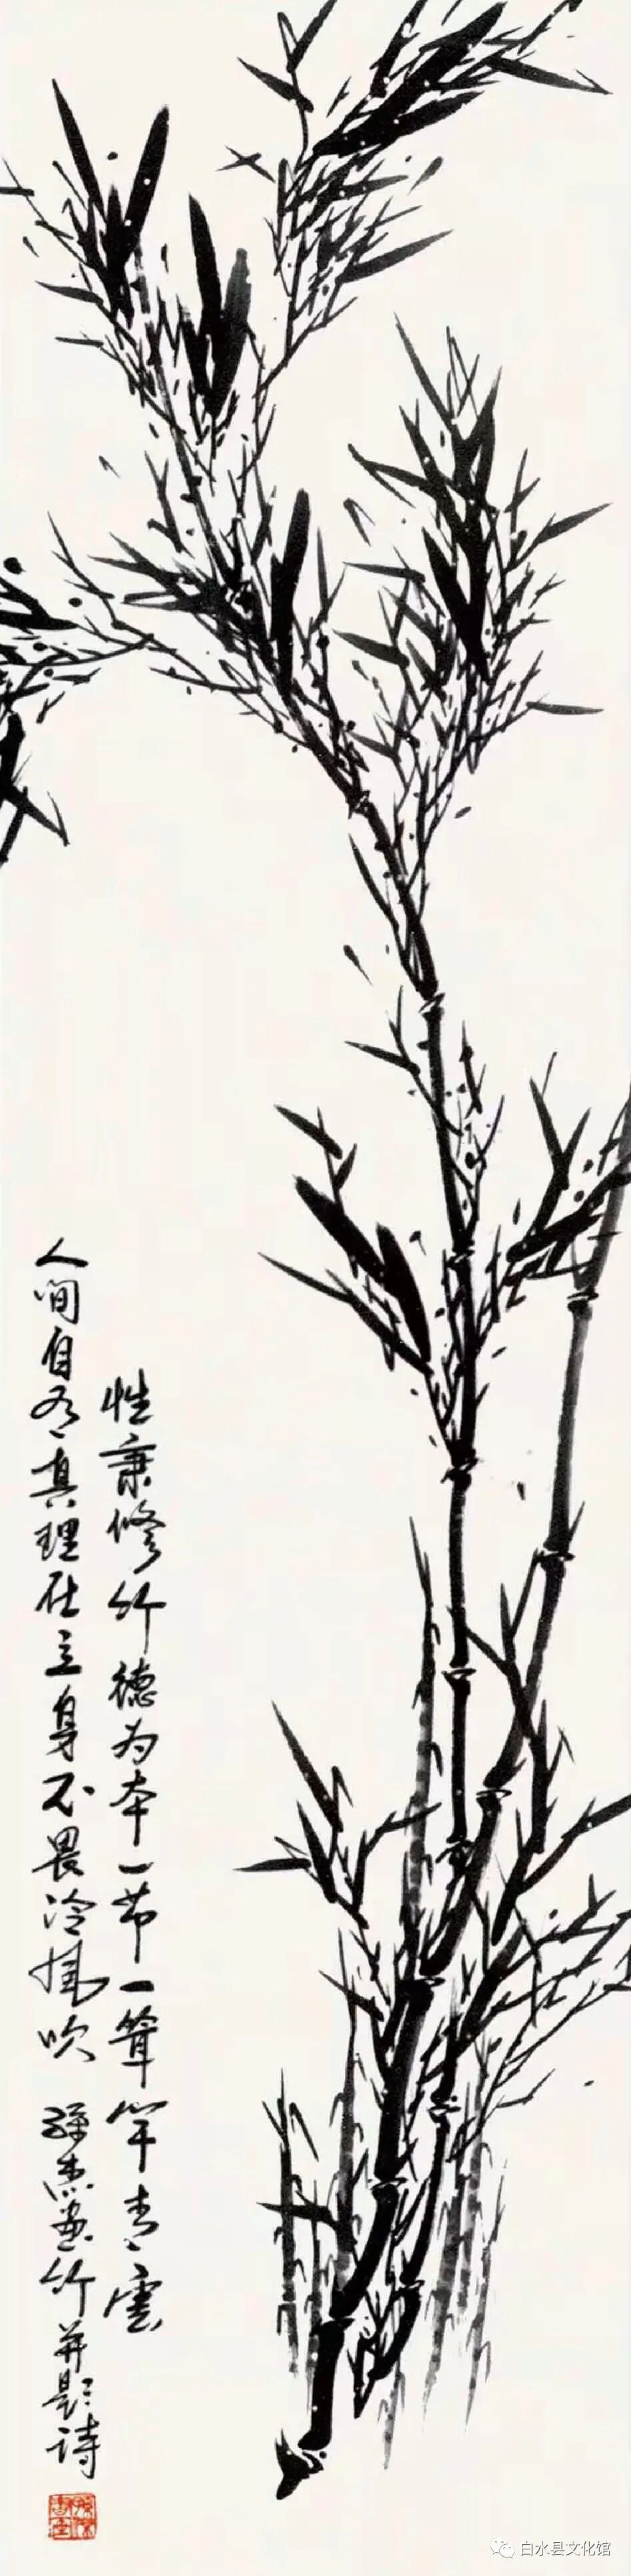 性秉修竹德为本一节一耸竿青雲
人间自有真理在立身不畏冷風吹 孫杰画竹并题诗
白水县文化馆